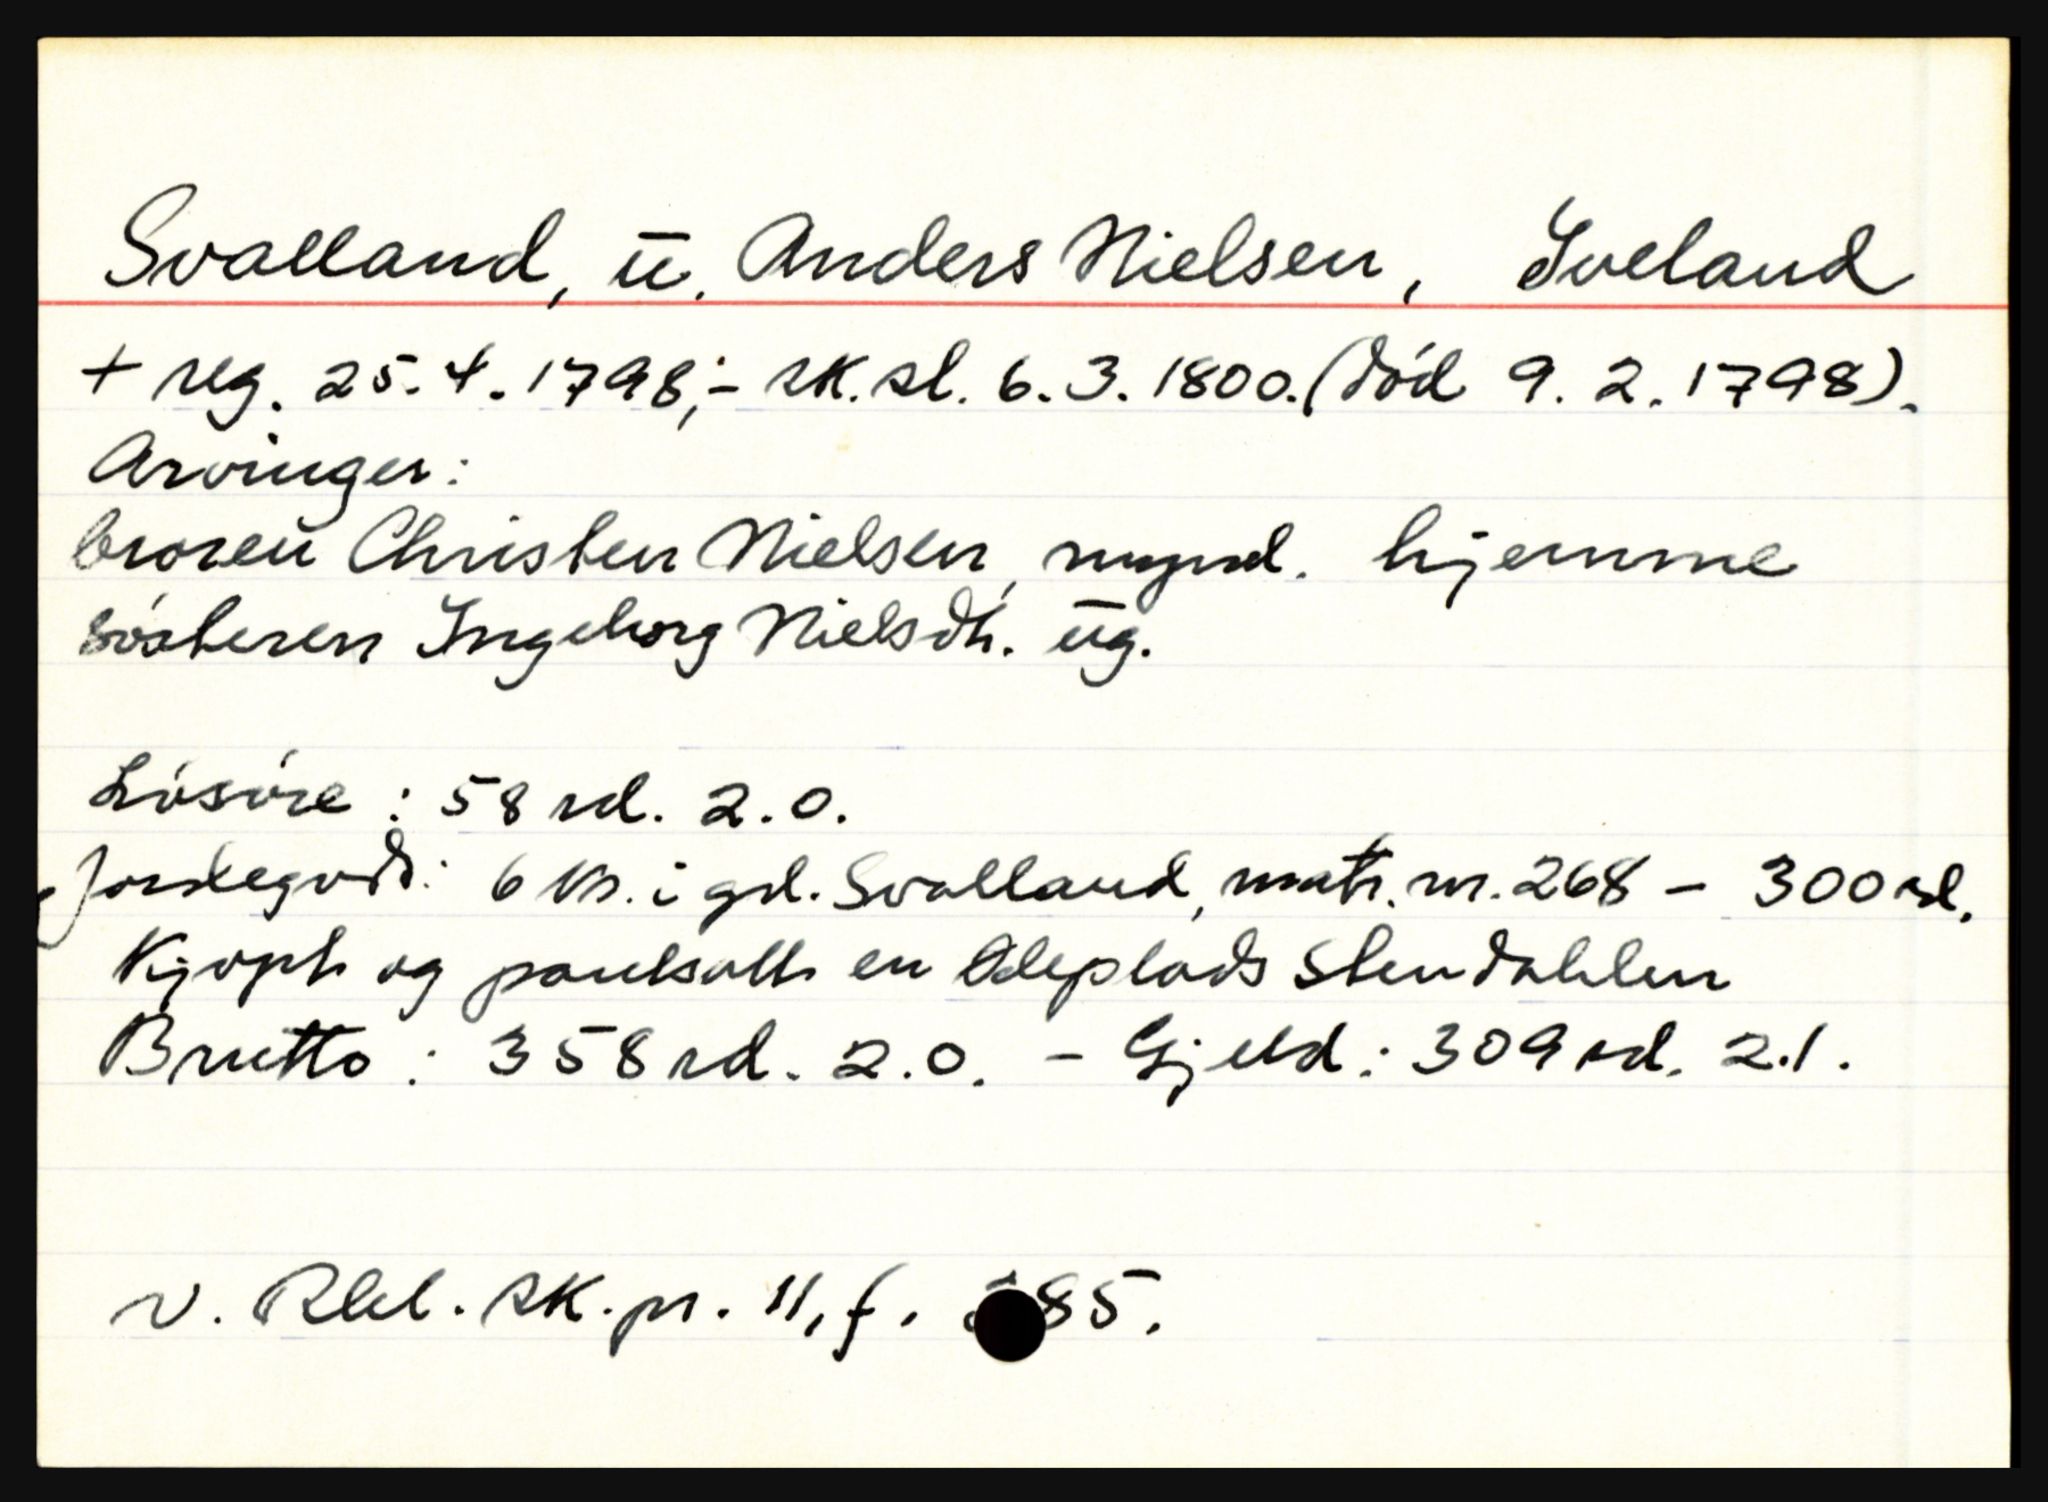 Svalland, ū. Anders Nielsen, Iveland
+ reg. 25.4.1798;- sk.sl. 6.3.1800. (död 9.2.1798).
Arvinger:
broren Christen Nielsen, mynd. hjemme
sösteren Ingeborg Nielsdtr. ūg.
Lösöre : 58 rd. 2.0.
Jordegods: 6 ks. i gd. Svalland, matr. nr. 268 - 300 rd.
Kjöpt og pantsatt en Ödeplads Stendahlen
Brutto : 358 rd. 2.0. - Gjeld : 309 rd. 2.1.
v. Rbl. sk.pr. 11, f. 85.